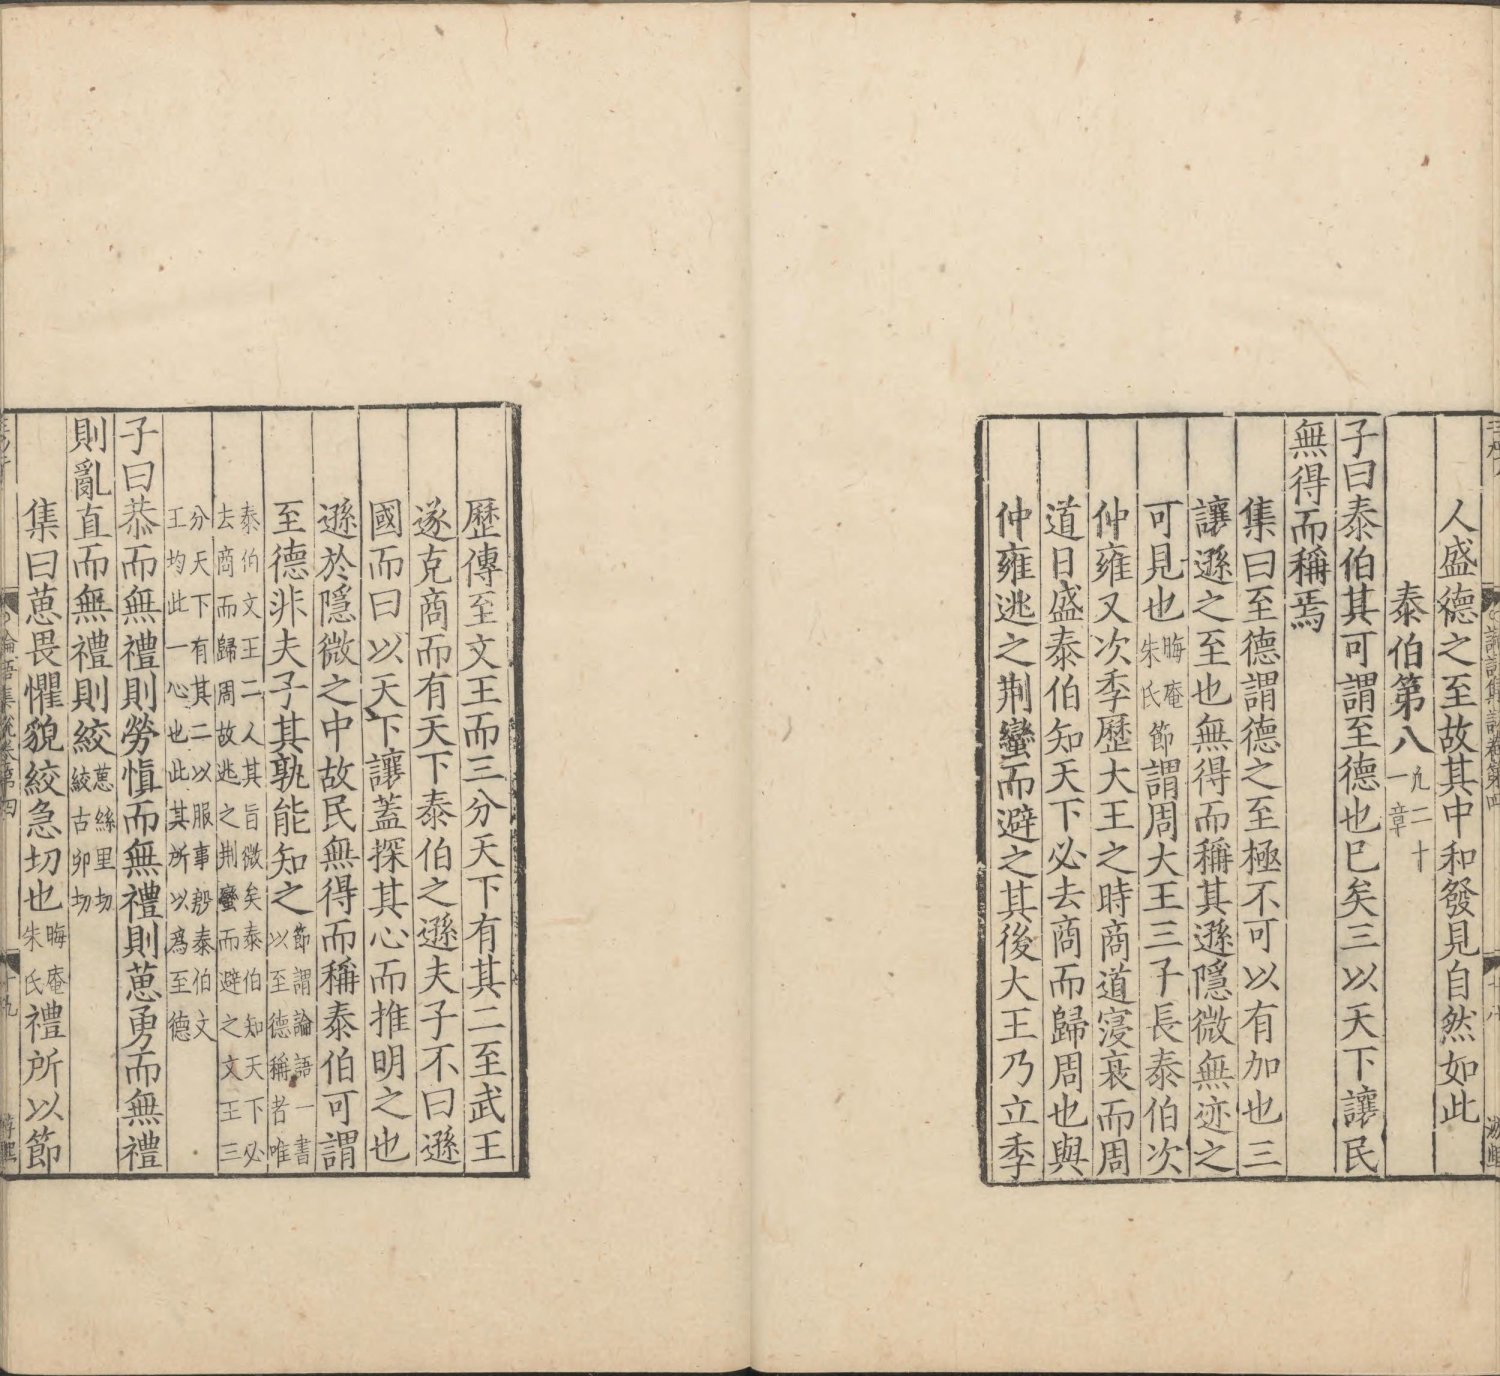 人盛德之至故其中和發見自然如此
泰伯第八凡二十一章
子曰泰伯其可謂至德也已矣三以天下讓民
無得而稱焉
集曰至德謂德之至極不可以有加也三
讓遜之至也無得而稱其遜隱微無迹之
可見也晦庵朱氏節謂周大王三子長泰伯次
仲雍又次季歷大王之時商道寖衰而周
道日盛泰伯知天下必去商而歸周也與
仲雍逃之荆蠻而避之其後大王乃立季
歷傳至文王而三分天下有其二至武王
遂克商而有天下泰伯之遜夫子不曰遜
國而曰以天下讓蓋探其心而推明之也
遜於隱微之中故民無得而稱泰伯可謂
至德非夫子其孰能知之節謂論語一書以至德稱者唯
泰伯文王二人其旨微矣泰伯知天下必去商而歸周故逃之荆蠻而避之文王三
分天下有其二以服事殷泰伯文王均此一心也此其所以爲至德
子曰恭而無禮則勞慎而無禮則葸勇而無禮
則亂直而無禮則絞葸絲里切絞古卯切
集曰葸畏懼貌絞急切也晦庵朱氏禮所以節
論語集說卷第四
十九